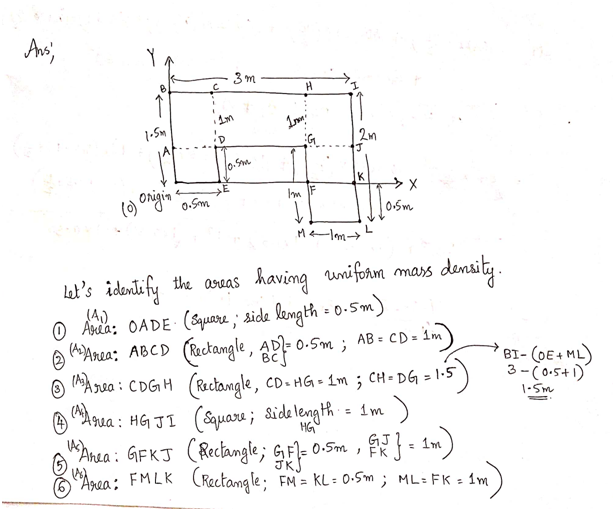 Ans;
Y
3m
B
C
H
I
1.5m
1m
1m
2m
A
D
G
J
0.5m
1m
E
F
K
X
(0) Origin
0.5m
0.5m
M
1m
L
Let's identify the areas having uniform mass density.
① (A1) Area: OADE (Square; side length = 0.5m)
② (A2) Area: ABCD (Rectangle, AD BC } = 0.5m ; AB = CD = 1m)
③ (A3) Area: CDGH (Rectangle, CD = HG = 1m ; CH = DG = 1.5)
BI - (OE + ML)
3 - (0.5 + 1)
1.5m
④ (A4) Area: HGJI (Square; sidelength HG = 1m)
⑤ (A5) Area: GFKJ (Rectangle; GF JK } = 0.5m , GJ FK } = 1m)
⑥ (A6) Area: FMLK (Rectangle; FM = KL = 0.5m ; ML = FK = 1m)